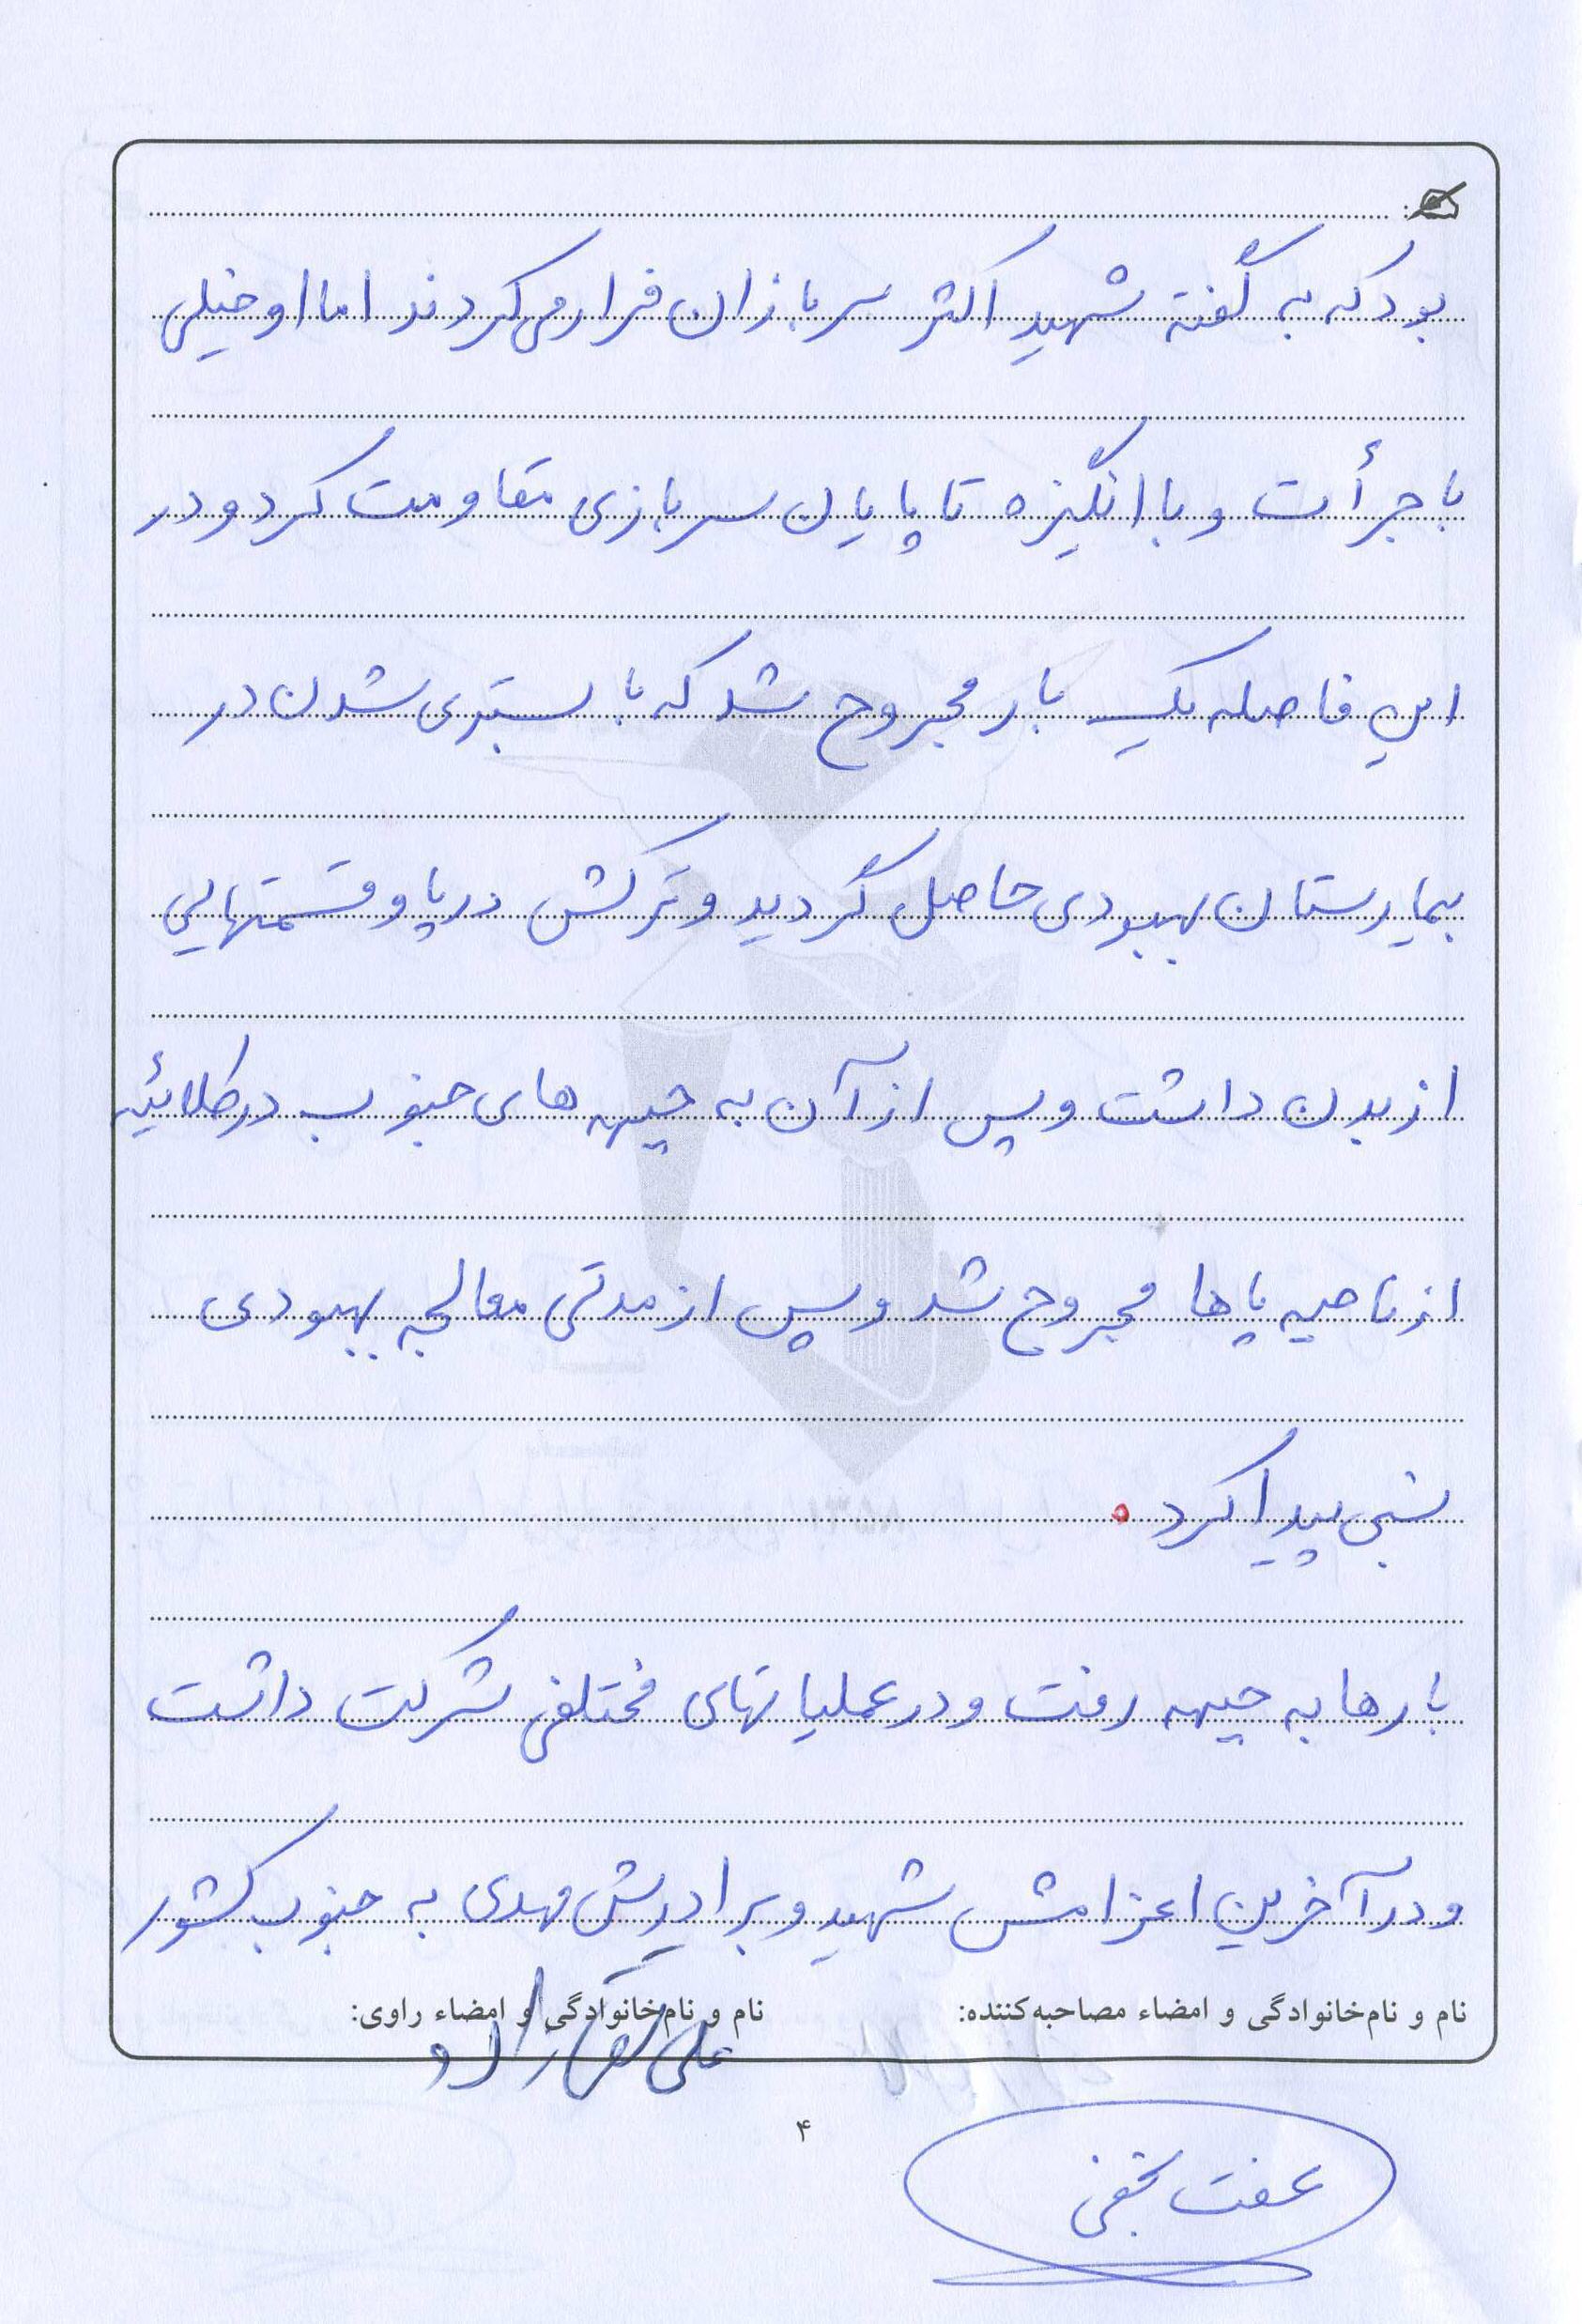 بود که به گفته شهید اکثر سربازان فرار می کردند اما او خیلی
با جرأت و با انگیزه تا پایان سربازی مقاومت کرد و در
این فاصله یک بار مجروح شد که با بستری شدن در
بیمارستان بهبودی حاصل گردید و ترکش در پا و قسمتهایی
از بدن داشت و پس از آن به جبهه های جنوب در طلائیه
از ناحیه پاها مجروح شد و پس از مدتی معالجه بهبودی
نسبی پیدا کرد .
بارها به جبهه رفت و در عملیاتهای مختلفی شرکت داشت
و در آخرین اعزامش شهید و برادرش مهدی به جنوب کشور
نام و نام‌خانوادگی و امضاء مصاحبه‌کننده: نام و نام‌خانوادگی و امضاء راوی:
علی
۴
عفت نجفی